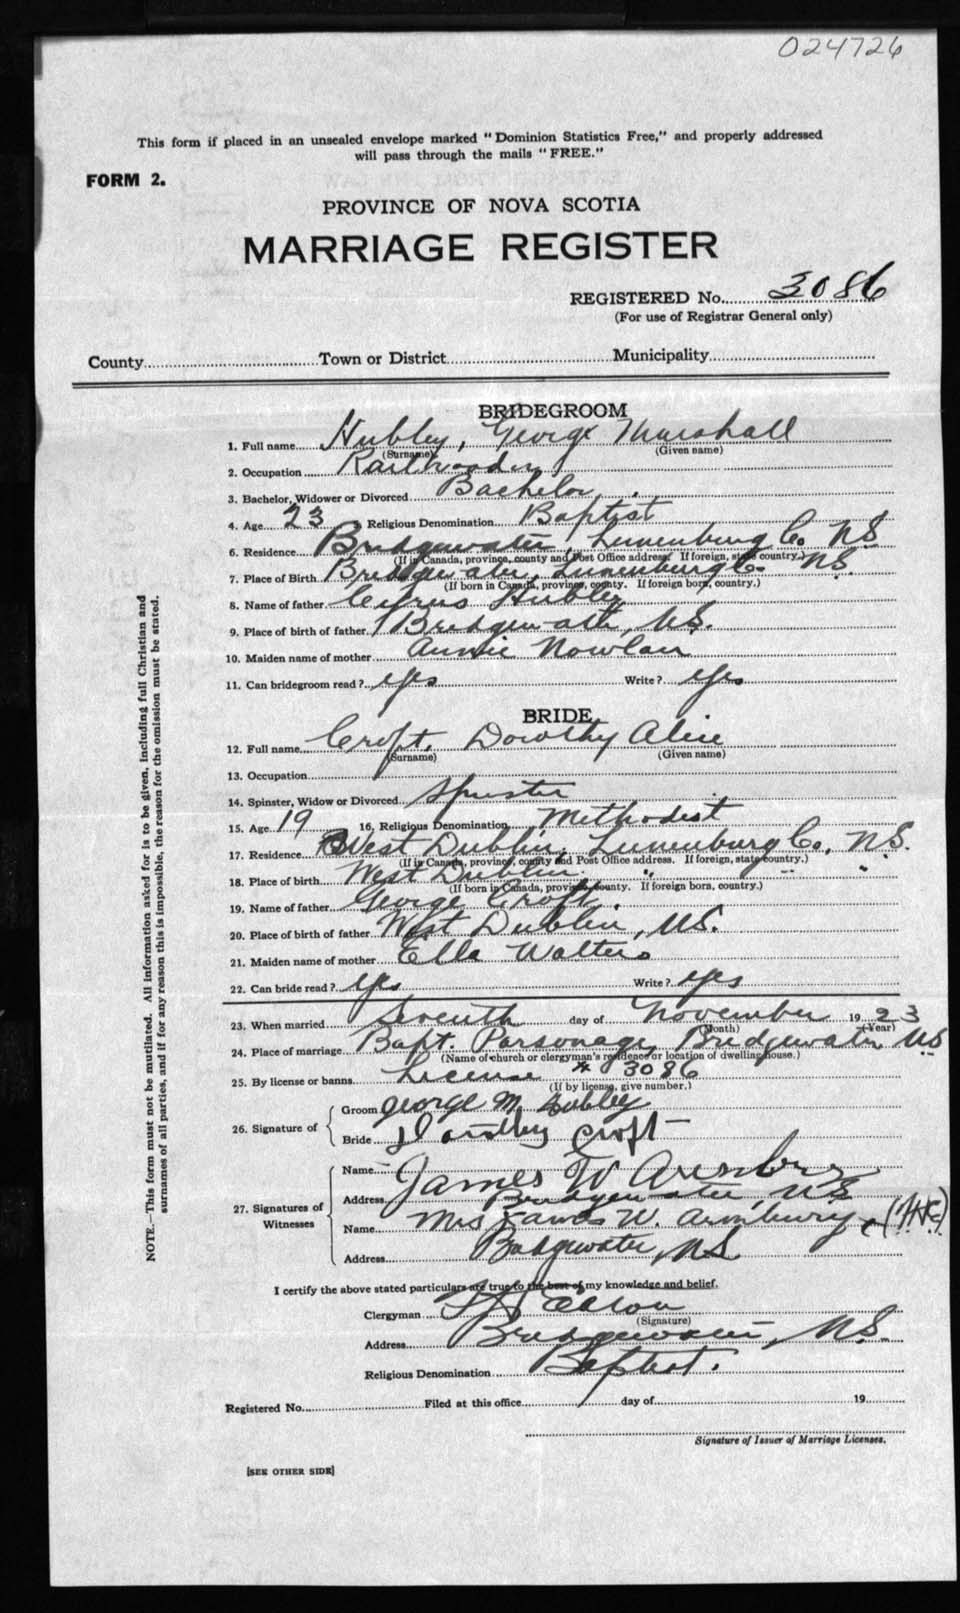 024726
This form if placed in an unsealed envelope marked "Dominion Statistics Free," and properly addressed
will pass through the mails "FREE."
FORM 2.
PROVINCE OF NOVA SCOTIA
MARRIAGE REGISTER
REGISTERED No. 3086
(For use of Registrar General only)
County Town or District Municipality
BRIDEGROOM
1. Full name Hubley, George Marshall
(Surname) (Given name)
2. Occupation
3. Bachelor, Widower or Divorced Bachelor
4. Age 23 5. Religious Denomination Baptist
6. Residence Bridgewater, Lunenburg Co. NS
(If in Canada, province, county and Post Office address. If foreign, state country.)
7. Place of Birth Bridgewater, Lunenburg Co. NS.
(If born in Canada, province, county. If foreign born, country.)
8. Name of father Cyrus Hubley
9. Place of birth of father Bridgewater, NS.
10. Maiden name of mother Annie Nowlan
11. Can bridegroom read? yes Write? yes
BRIDE
12. Full name Croft, Dorothy Alice
(Surname) (Given name)
13. Occupation
14. Spinster, Widow or Divorced Spinster
15. Age 19 16. Religious Denomination Methodist
17. Residence West Dublin, Lunenburg Co, N.S.
(If in Canada, province, county and Post Office address. If foreign, state country.)
18. Place of birth West Dublin, " " "
(If born in Canada, province, county. If foreign born, country.)
19. Name of father George Croft.
20. Place of birth of father West Dublin, NS.
21. Maiden name of mother Ella Walters
22. Can bride read? yes Write? yes
23. When married Seventh day of November 1923
(Month) (Year)
24. Place of marriage Bapt. Parsonage, Bridgewater, NS
(Name of church or clergyman's residence or location of dwelling house.)
25. By license or banns License # 3086
(If by license, give number.)
26. Signature of
Groom George M Hubley
Bride Dorothy Croft
27. Signatures of Witnesses
Name James W
Address Bridgewater NS
Name Mrs James W. Armbury
Address Bridgewater, NS
I certify the above stated particulars are true to the best of my knowledge and belief.
Clergyman
(Signature)
Address Bridgewater, NS.
Religious Denomination Baptist.
Registered No. Filed at this office day of 19
Signature of Issuer of Marriage Licenses.
[SEE OTHER SIDE]
NOTE.—This form must not be mutilated. All information asked for is to be given, including full Christian and
surnames of all parties, and if for any reason this is impossible, the reason for the omission must be stated.